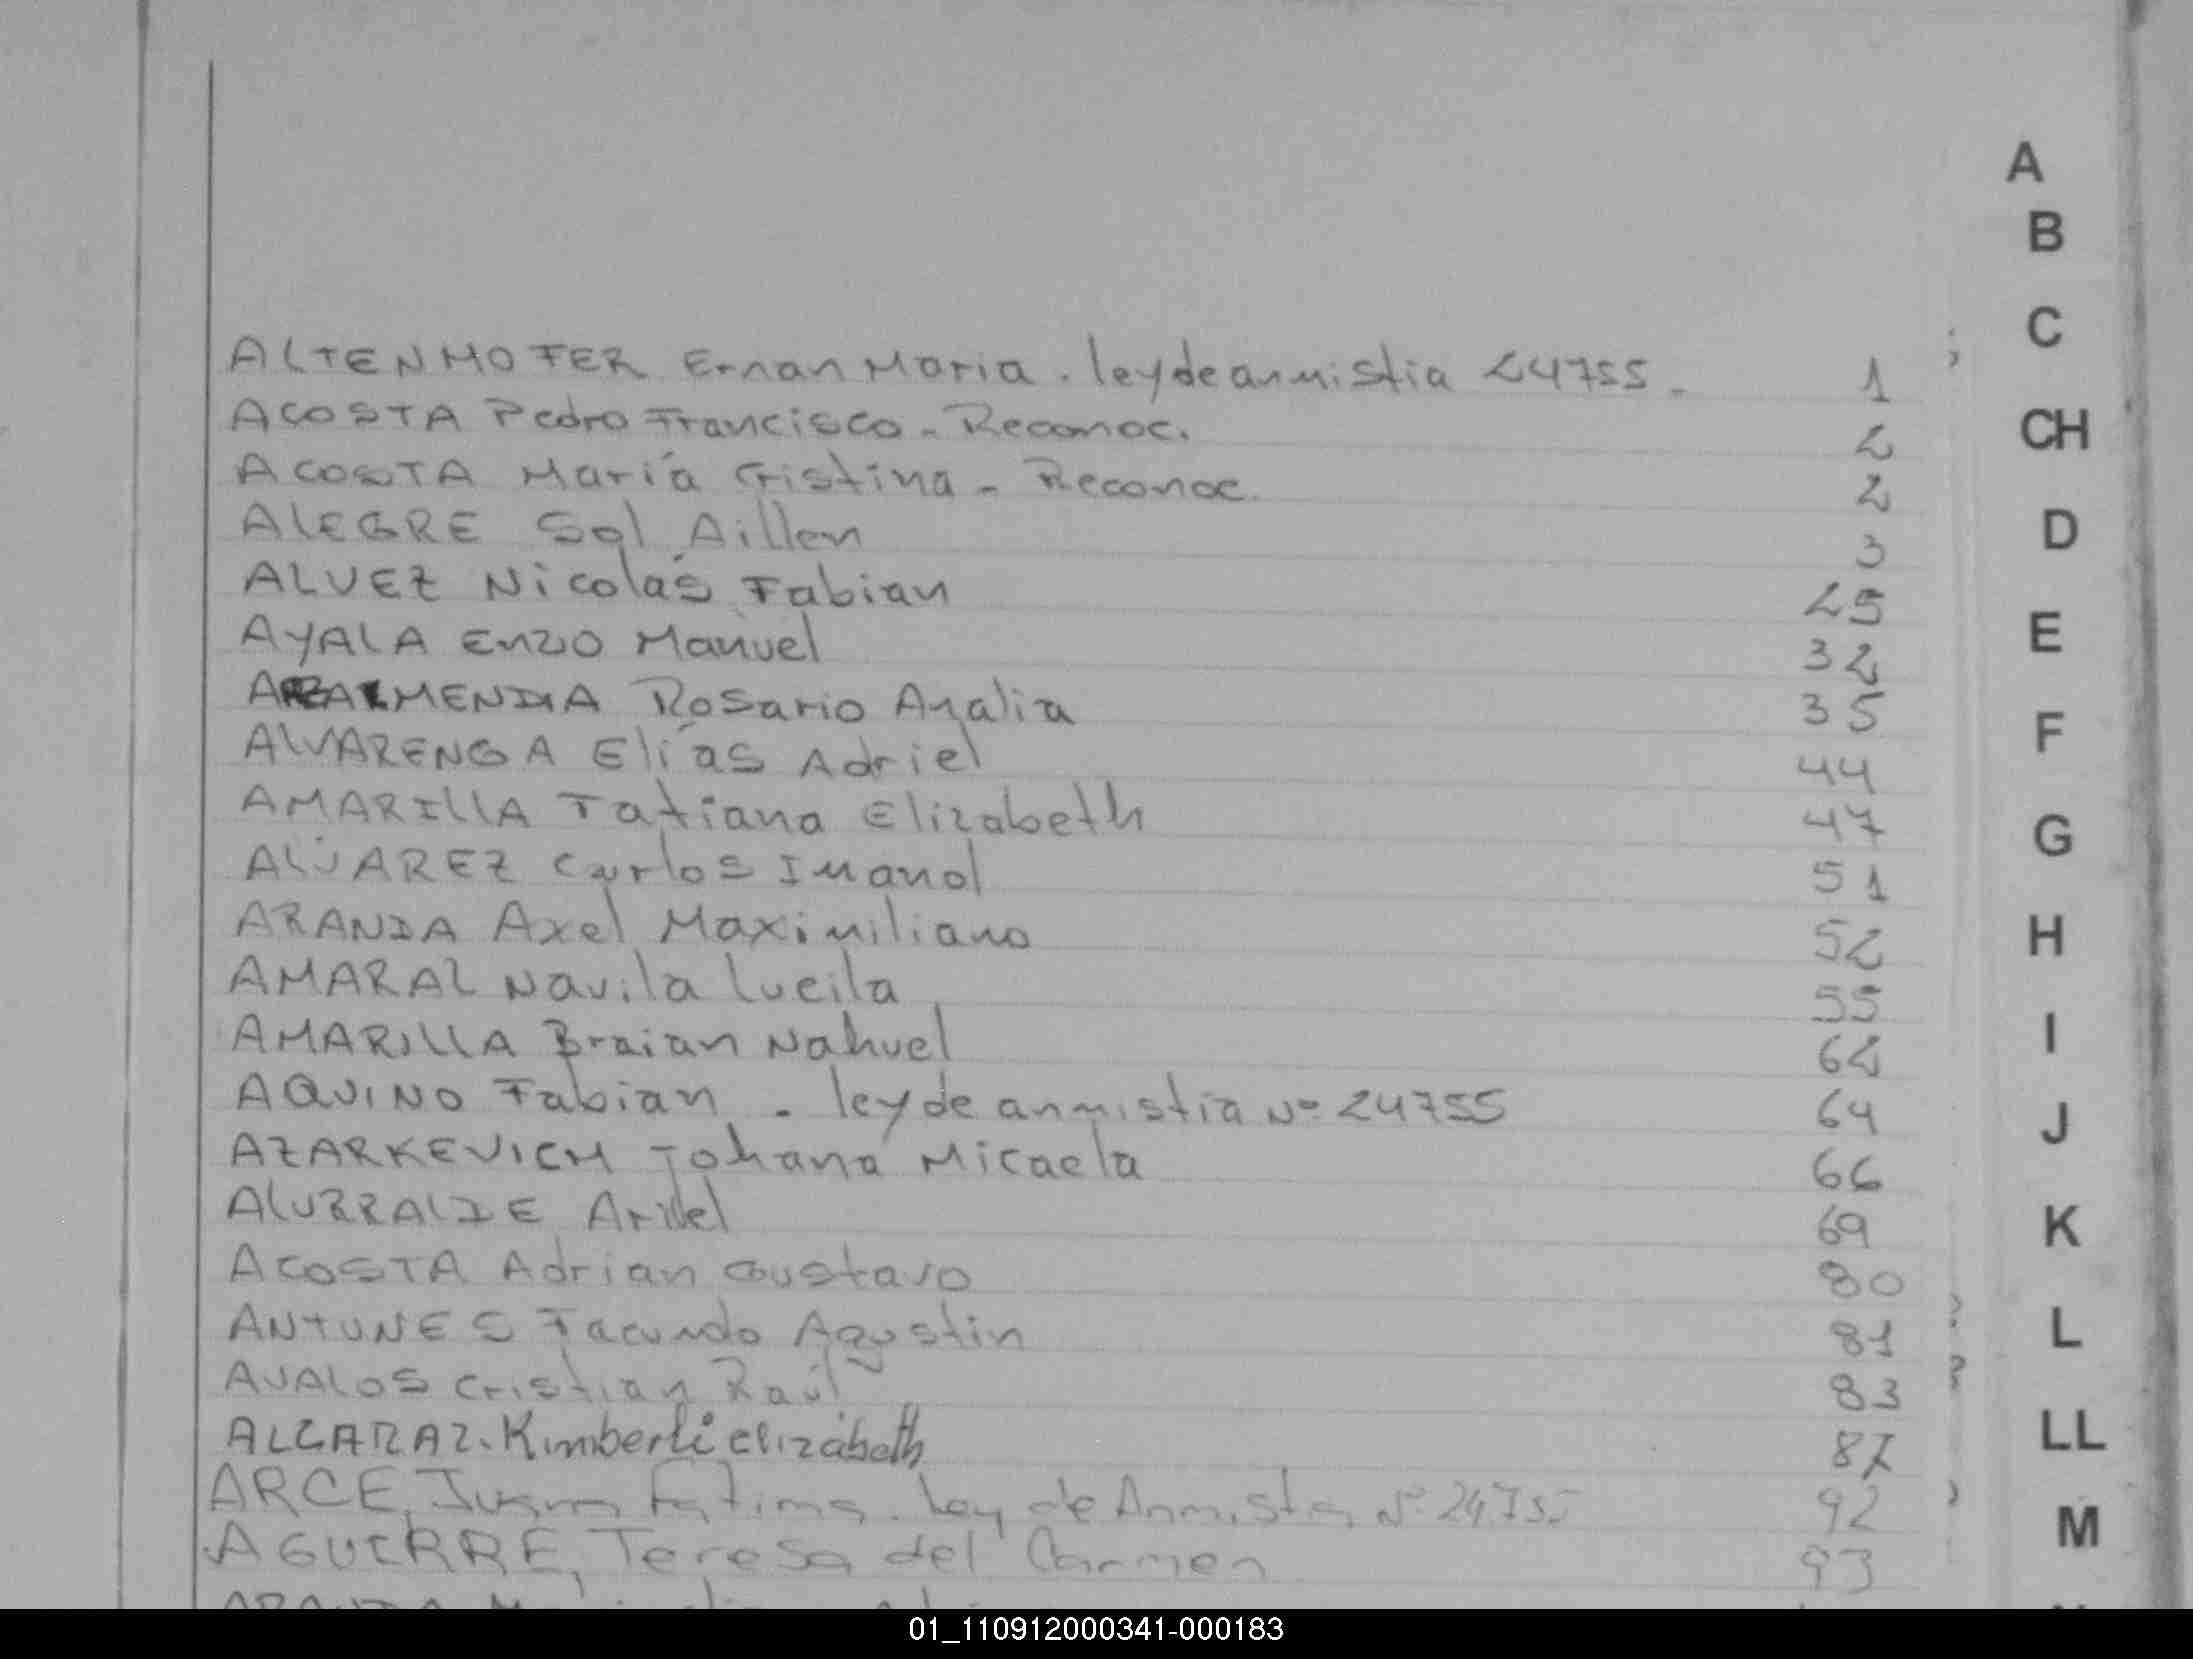 ALTENHOFER Ernan Maria. ley de anmistia 24755. 1
ACOSTA Pedro Francisco - Reconoc. 2
ACOSTA María Cristina - Reconoc. 2
ALEGRE Sol Aillen 3
ALVEZ Nicolás Fabian 25
AYALA Enzo Manuel 32
Rosario Analia 35
ALVARENGA Elías Adriel 44
AMARILLA Tatiana Elizabeth 47
ALVAREZ Carlos Imanol 51
ARANDA Axel Maximiliano 52
AMARAL Navila Lucila 55
AMARILLA Braian Nahuel 62
AQUINO Fabian - ley de anmistia Nº 24755 64
AZARKEVICH Johana Micaela 66
ALURRALDE Ariel 69
ACOSTA Adrian Gustavo 80
ANTUNES Facundo Agustin 81
AVALOS Cristian Raúl 83
ALCARAZ. Kimberli Elizabeth 87
ARCE, Juana Fatima. Ley de Anmistia Nº 24755 92
AGUERRE, Teresa del Carmen 93
A
B
C
CH
D
E
F
G
H
I
J
K
L
LL
M
01_110912000341-000183